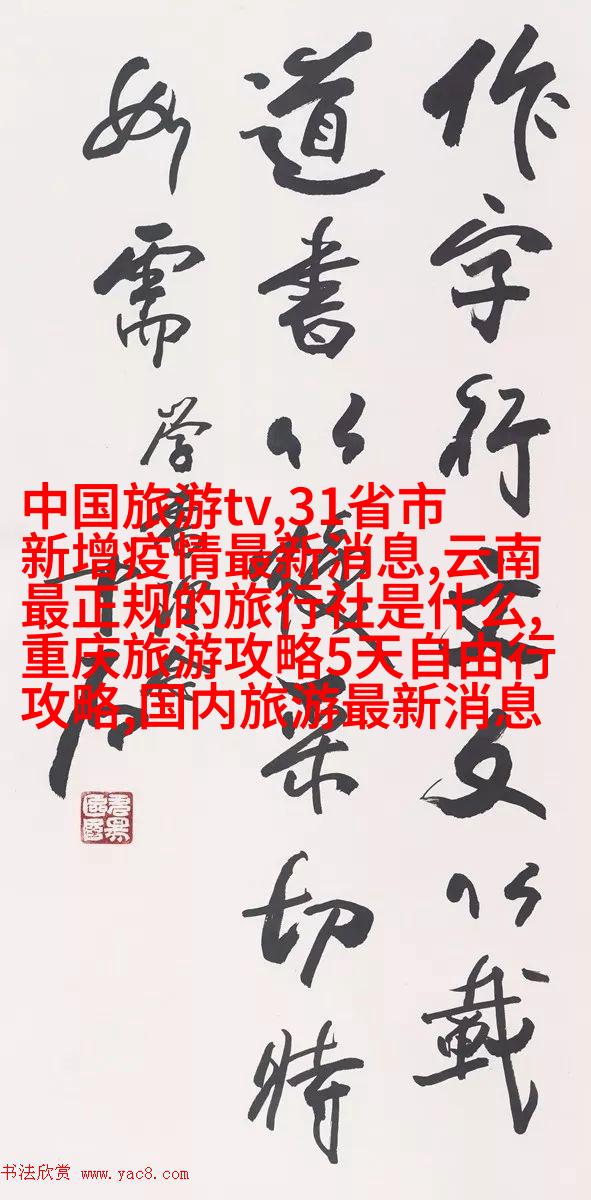 作字行文文以載
道書以焕采切時
如需
中国旅游tv,31省市
新增疫情最新消息,云南
最正规的旅行社是什么,
重庆旅游攻略5天自由行
攻略,国内旅游最新消息
书法欣赏 www.yac8.com